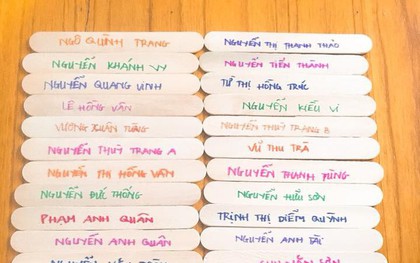 NGÔ QUỲNH TRANG
NGUYỄN KHÁNH VY
NGUYỄN QUANG VINH
LÊ HỒNG VÂN
VƯƠNG XUÂN TÙNG
NGUYỄN THUỲ TRANG A
NGUYỄN THỊ HỒNG VÂN
NGUYỄN ĐỨC THỐNG
PHẠM ANH QUÂN
NGUYỄN ANH QUÂN
NGUYỄN THỊ THANH THẢO
NGUYỄN TIẾN THÀNH
THỊ HỒNG TRÚC
NGUYỄN KIỀU VI
NGUYỄN THUỲ TRANG B
VŨ THU TRÀ
NGUYỄN THANH TÙNG
NGUYỄN HỮU SƠN
TRỊNH THỊ DIỄM QUỲNH
NGUYỄN ANH TÀI